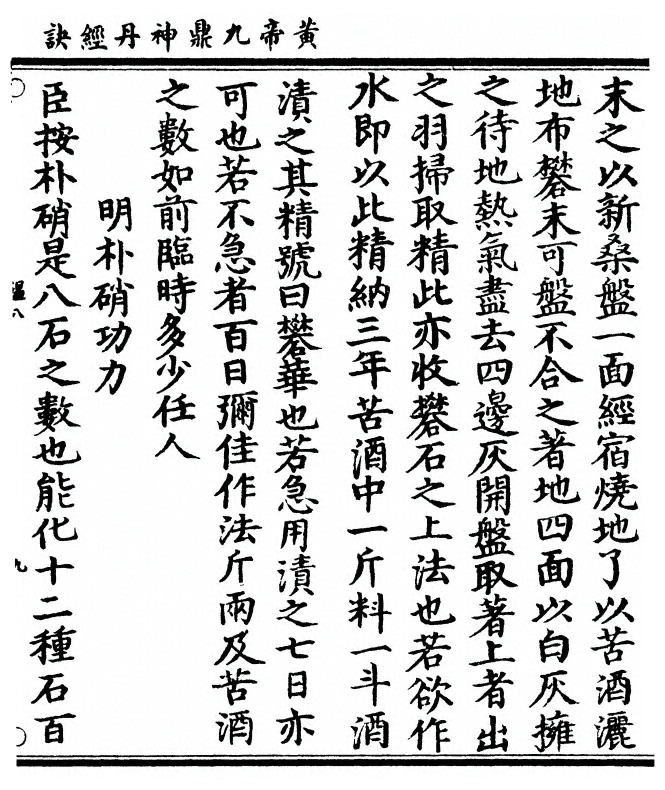 黃帝九鼎神丹經訣
末之以新桑盤一面經宿燒地了以苦酒灑
地布礬末可盤不合之著地四面以白灰擁
之待地熱氣盡去四邊灰開盤取著上者出
之羽掃取精此亦收礬石之上法也若欲作
水即以此精納三年苦酒中一斤料一斗酒
漬之其精號曰礬華也若急用漬之七日亦
可也若不急者百日彌佳作法斤兩及苦酒
之數如前臨時多少任人
明朴硝功力
臣按朴硝是八石之數也能化十二種石百
溫八
九